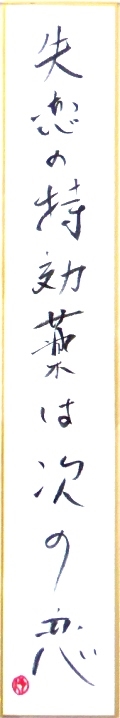 失恋の特効薬は次の恋